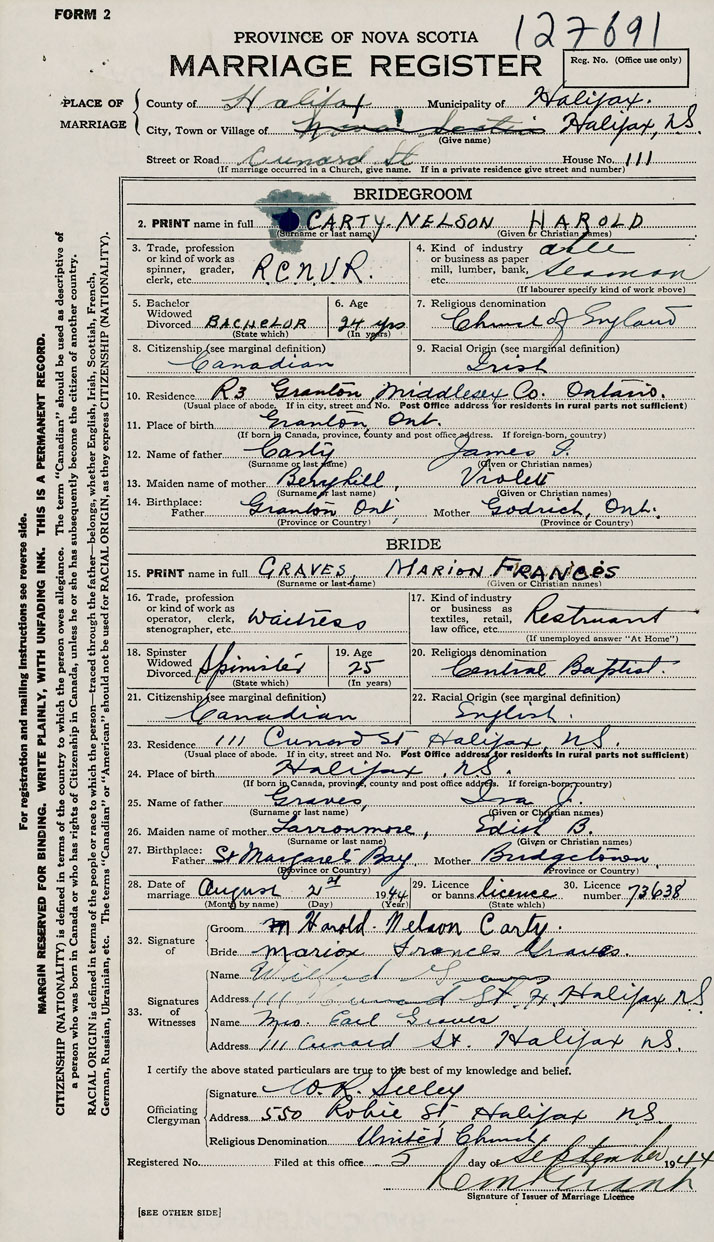 FORM 2
127691
PROVINCE OF NOVA SCOTIA
MARRIAGE REGISTER
Reg. No. (Office use only)
PLACE OF MARRIAGE
County of Halifax Municipality of Halifax.
City, Town or Village of Nova Scotia Halifax, N.S.
(Give name)
Street or Road Cunard St House No. 111
(If marriage occurred in a Church, give name. If in a private residence give street and number)
BRIDEGROOM
2. PRINT name in full CARTY. NELSON HAROLD
(Surname or last name) (Given or Christian names)
3. Trade, profession or kind of work as spinner, grader, clerk, etc. R.C.N.V.R.
4. Kind of industry or business as paper mill, lumber, bank, etc. able Seaman
(If labourer specify kind of work above)
5. Bachelor Widowed Divorced BACHELOR
(State which)
6. Age 24 yrs
(In years)
7. Religious denomination
Church of England
8. Citizenship (see marginal definition)
Canadian
9. Racial Origin (see marginal definition)
Irish
10. Residence R3 Granton, Middlesex Co. Ontario.
(Usual place of abode. If in city, street and No. Post Office address for residents in rural parts not sufficient)
11. Place of birth Granton, Ont.
(If born in Canada, province, county and post office address. If foreign-born, country)
12. Name of father Carty James
(Surname or last name) (Given or Christian names)
13. Maiden name of mother Berryhill, Violet
(Surname or last name) (Given or Christian names)
14. Birthplace: Father Granton Ont Mother Godrich, Ont.
(Province or Country) (Province or Country)
BRIDE
15. PRINT name in full GRAVES, MARION FRANCES
(Surname or last name) (Given or Christian names)
16. Trade, profession or kind of work as operator, clerk, stenographer, etc. Waitress
17. Kind of industry or business as textiles, retail, law office, etc. Restruant
(If unemployed answer "At Home")
18. Spinster Widowed Divorced Spinister
(State which)
19. Age 25
(In years)
20. Religious denomination
Central Baptist.
21. Citizenship (see marginal definition)
Canadian
22. Racial Origin (see marginal definition)
English.
23. Residence 111 Cunard St Halifax, N.S.
(Usual place of abode. If in city, street and No. Post Office address for residents in rural parts not sufficient)
24. Place of birth Halifax N.S.
(If born in Canada, province, county and post office address. If foreign-born, country)
25. Name of father Graves, Iva J.
(Surname or last name) (Given or Christian names)
26. Maiden name of mother Edith B.
(Surname or last name) (Given or Christian names)
27. Birthplace: Father St Margaret Bay Mother Bridgetown
(Province or Country) (Province or Country)
28. Date of marriage August 2nd 1944
(Month by name) (Day) (Year)
29. Licence or banns licence
(State which)
30. Licence number 73638
32. Signature of
Groom Harold Nelson Carty.
Bride Marion Frances Graves.
33. Signatures of Witnesses
Name Wilfred Graves
Address 111 Cunard St. Halifax N.S
Name Mrs. Earl Graves
Address 111 Cunard St. Halifax N.S.
I certify the above stated particulars are true to the best of my knowledge and belief.
Officiating Clergyman
Signature W. R. Seeley
Address 550 Robie St, Halifax NS
Religious Denomination United Church
Registered No. Filed at this office 5 day of September 1944
Signature of Issuer of Marriage Licence
[SEE OTHER SIDE]
For registration and mailing instructions see reverse side.
MARGIN RESERVED FOR BINDING. WRITE PLAINLY, WITH UNFADING INK. THIS IS A PERMANENT RECORD.
CITIZENSHIP (NATIONALITY) is defined in terms of the country to which the person owes allegiance. The term "Canadian" should be used as descriptive of
a person who was born in Canada or who has rights of Citizenship in Canada, unless he or she has subsequently become the citizen of another country.
RACIAL ORIGIN is defined in terms of the people or race to which the person—traced through the father—belongs, whether English, Irish, Scottish, French,
German, Russian, Ukrainian, etc. The terms "Canadian" or "American" should not be used for RACIAL ORIGIN, as they express CITIZENSHIP (NATIONALITY).